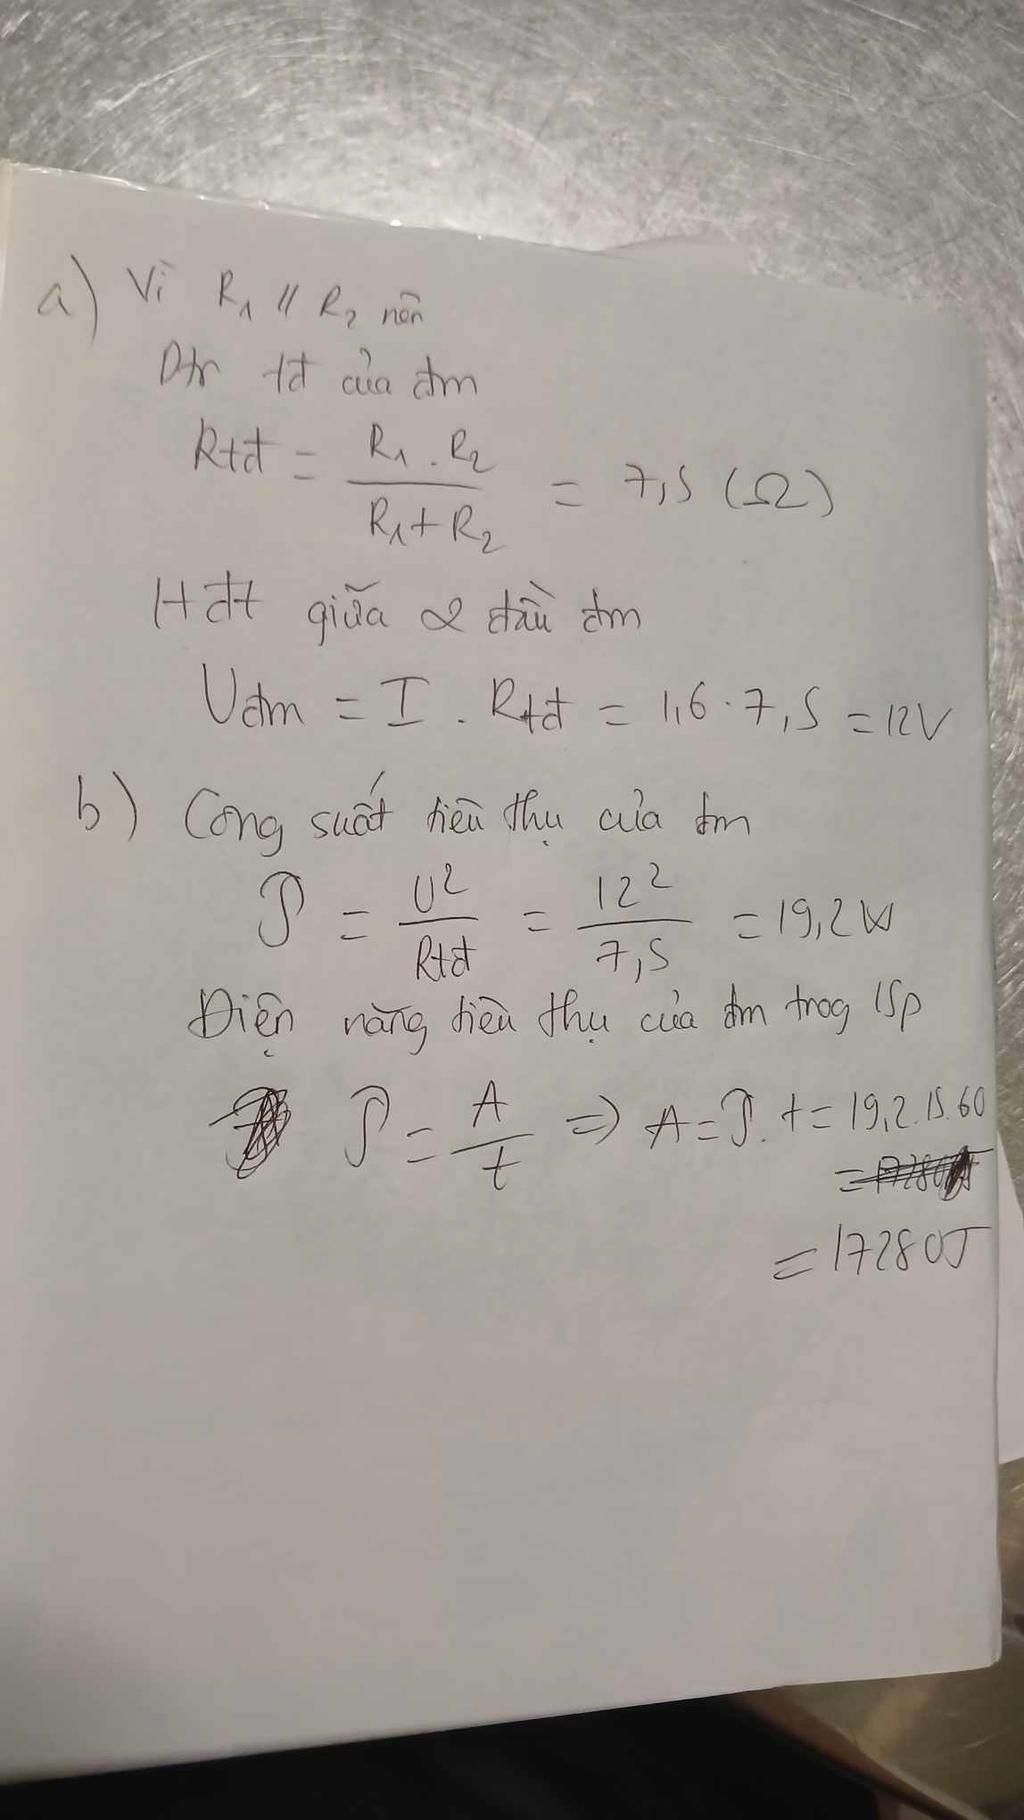 a) Vì R₁ // R₂ nên
Dtr tđ của đm
Rtđ = R₁ . R₂ / R₁ + R₂ = 7,5 (Ω)
Hđt giữa 2 đầu đm
Uđm = I . Rtđ = 1,6 . 7,5 = 12V
b) Công suất tiêu thụ của đm
P = U² / Rtđ = 12² / 7,5 = 19,2W
Điện năng tiêu thụ của đm trog 15p
P = A / t => A = P . t = 19,2.15.60
= 17280J